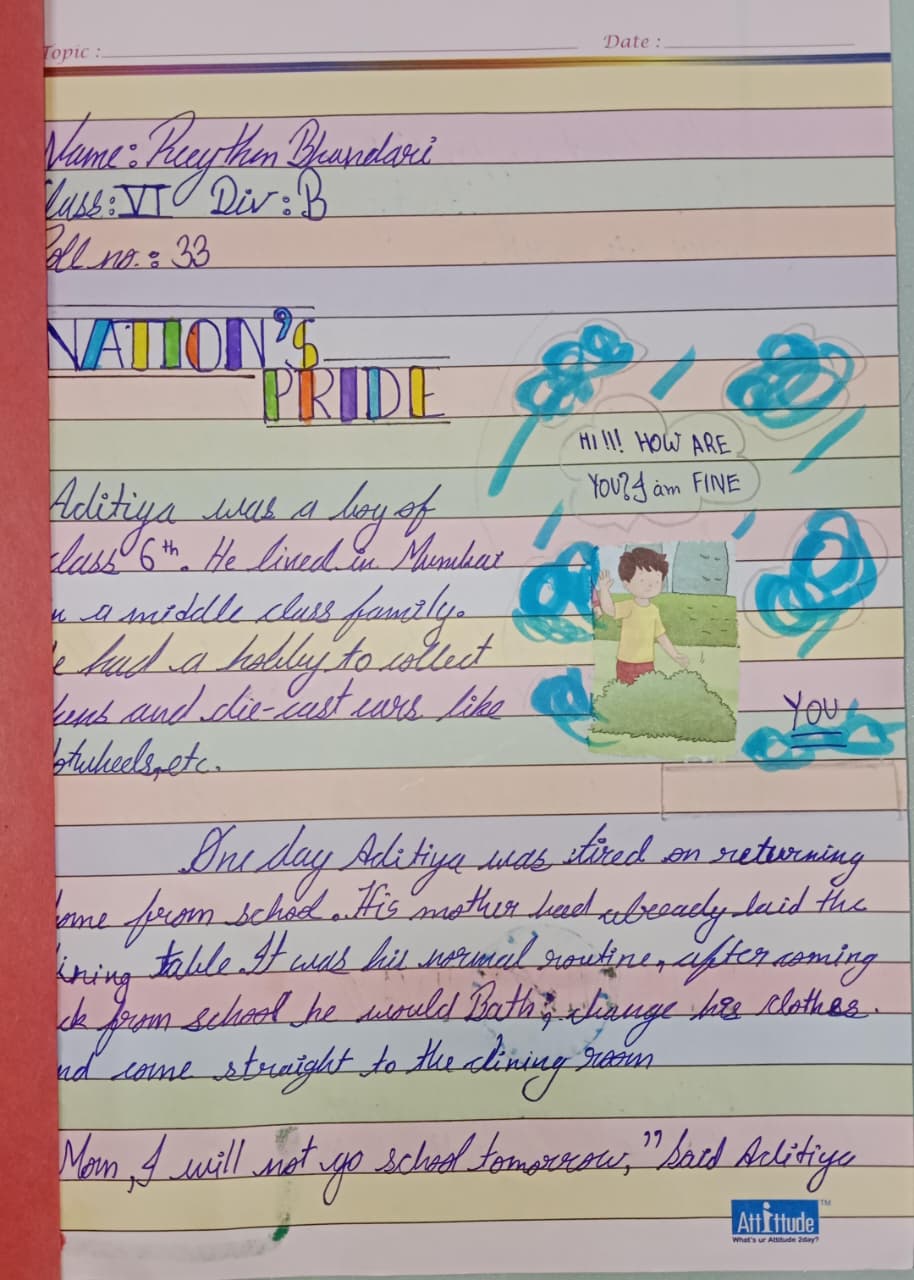 Topic :
Date :
Name: Reeythm Bhandari
lass: VI Div: B
oll no.: 33
NATION'S
PRIDE
HI!!! HOW ARE
YOU? I am FINE
Aditiya was a boy of
class 6th. He lived in Mumbai
n a middle class family.
e had a hobby to collect
and die-cast cars like
otwheels, etc.
YOU
One day Aditiya was tired on returning
ome from school. His mother had already laid the
ining table. It was his normal routine, after coming
ck from school he would Bath; change his clothes.
nd come straight to the dining room
Mom, I will not go school tomorrow," Said Aditiya
Attitude
What's ur Attitude 2day?
TM